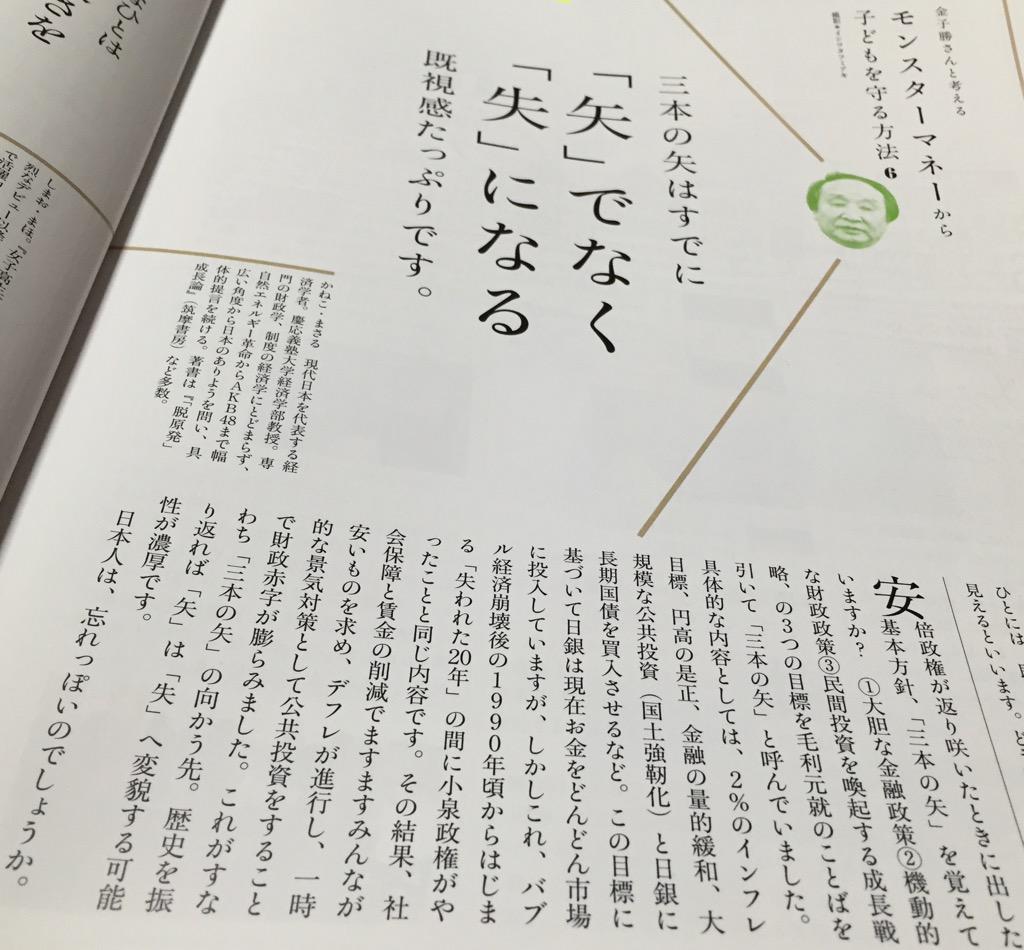 金子勝さんと考える
モンスターマネーから
子どもを守る方法6
三本の矢はすでに
「矢」でなく
「失」になる
既視感たっぷりです。
かねこ・まさる 現代日本を代表する経
済学者。慶応義塾大学経済学部教授。専
門の財政学、制度の経済学にとどまらず、
自然エネルギー革命からAKB48まで幅
広い角度から日本のありようを問い、具
体的提言を続ける。著書は『「脱原発」
成長論』(筑摩書房)など多数。
ひとには
見えるといいます。
安倍政権が返り咲いたときに出した
基本方針、「三本の矢」を覚えて
いますか? ①大胆な金融政策②機動的
な財政政策③民間投資を喚起する成長戦
略、の3つの目標を毛利元就のことばを
引いて「三本の矢」と呼んでいました。
具体的な内容としては、2%のインフレ
目標、円高の是正、金融の量的緩和、大
規模な公共投資(国土強靭化)と日銀に
長期国債を買入させるなど。この目標に
基づいて日銀は現在お金をどんどん市場
に投入していますが、しかしこれ、バブ
ル経済崩壊後の1990年頃からはじま
る「失われた20年」の間に小泉政権がや
ったことと同じ内容です。その結果、社
会保障と賃金の削減でますますみんなが
安いものを求め、デフレが進行し、一時
的な景気対策として公共投資をすること
で財政赤字が膨らみました。これがすな
わち「三本の矢」の向かう先。歴史を振
り返れば「矢」は「失」へ変貌する可能
性が濃厚です。
日本人は、忘れっぽいのでしょうか。
なひとは
さを
しまお・まほ。『女子高生
烈なデビュー以降
で活躍!